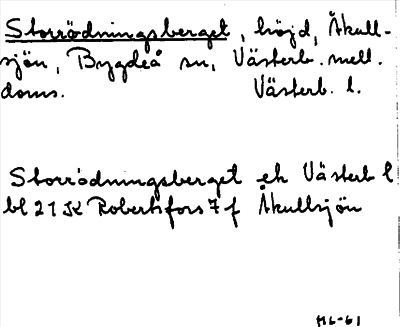 Storrödningsberget, höjd, Åkull-
sjön, Bygdeå sn, Västerb. mell.
doms. Västerb. l.
Storrödningsberget ek Västerb l
bl 21 K Robertsfors 7 f Åkullsjön